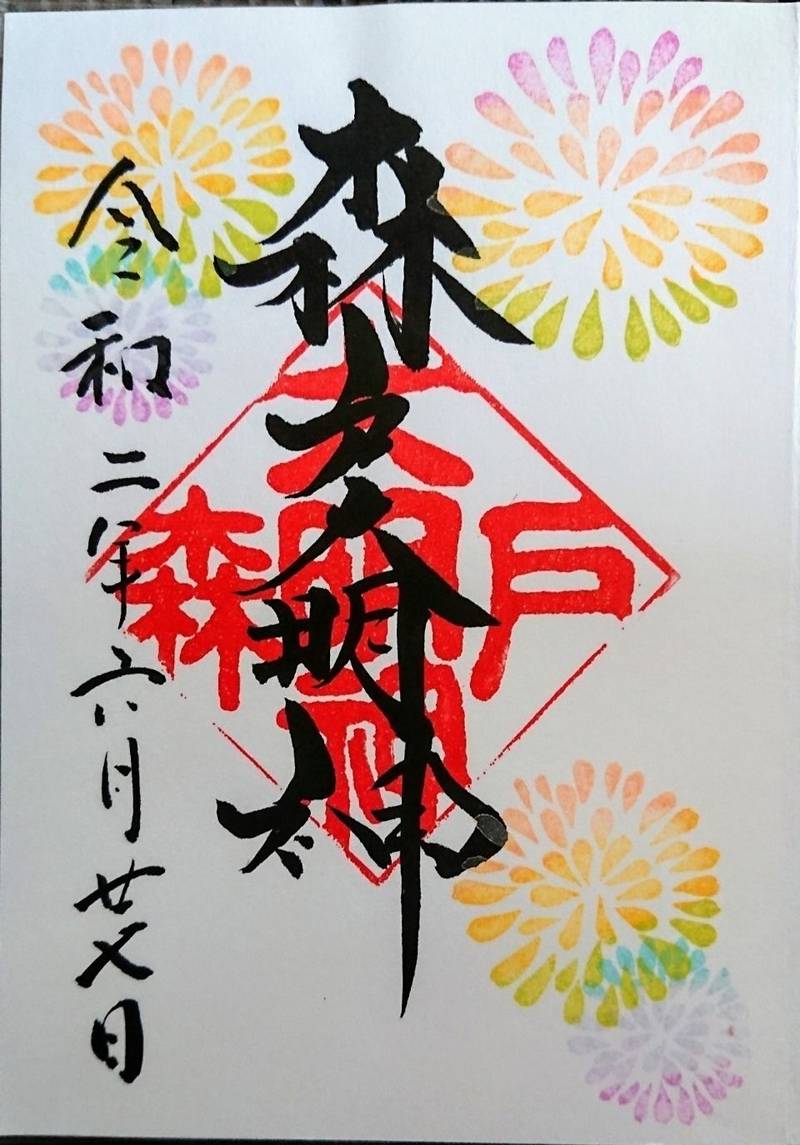 森戸大明神
森戸大明神
令和二年六月廿八日